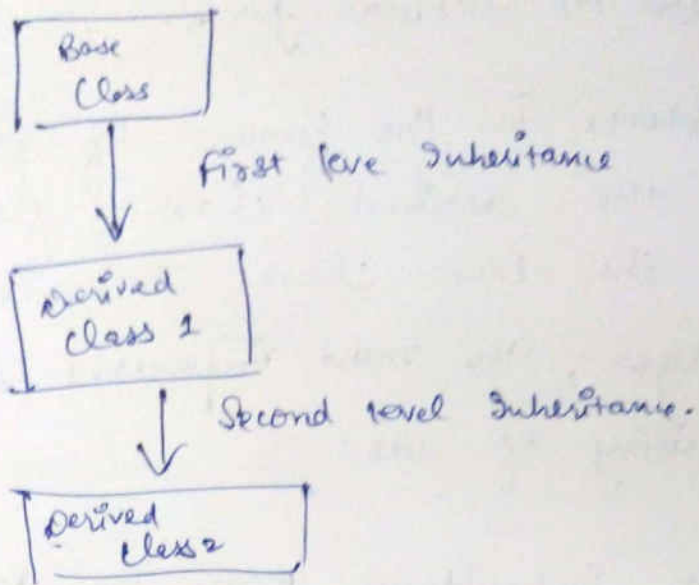 Base
Class
First leve Inheritance
Derived
Class 1
Second level Inheritance.
Derived
Class 2